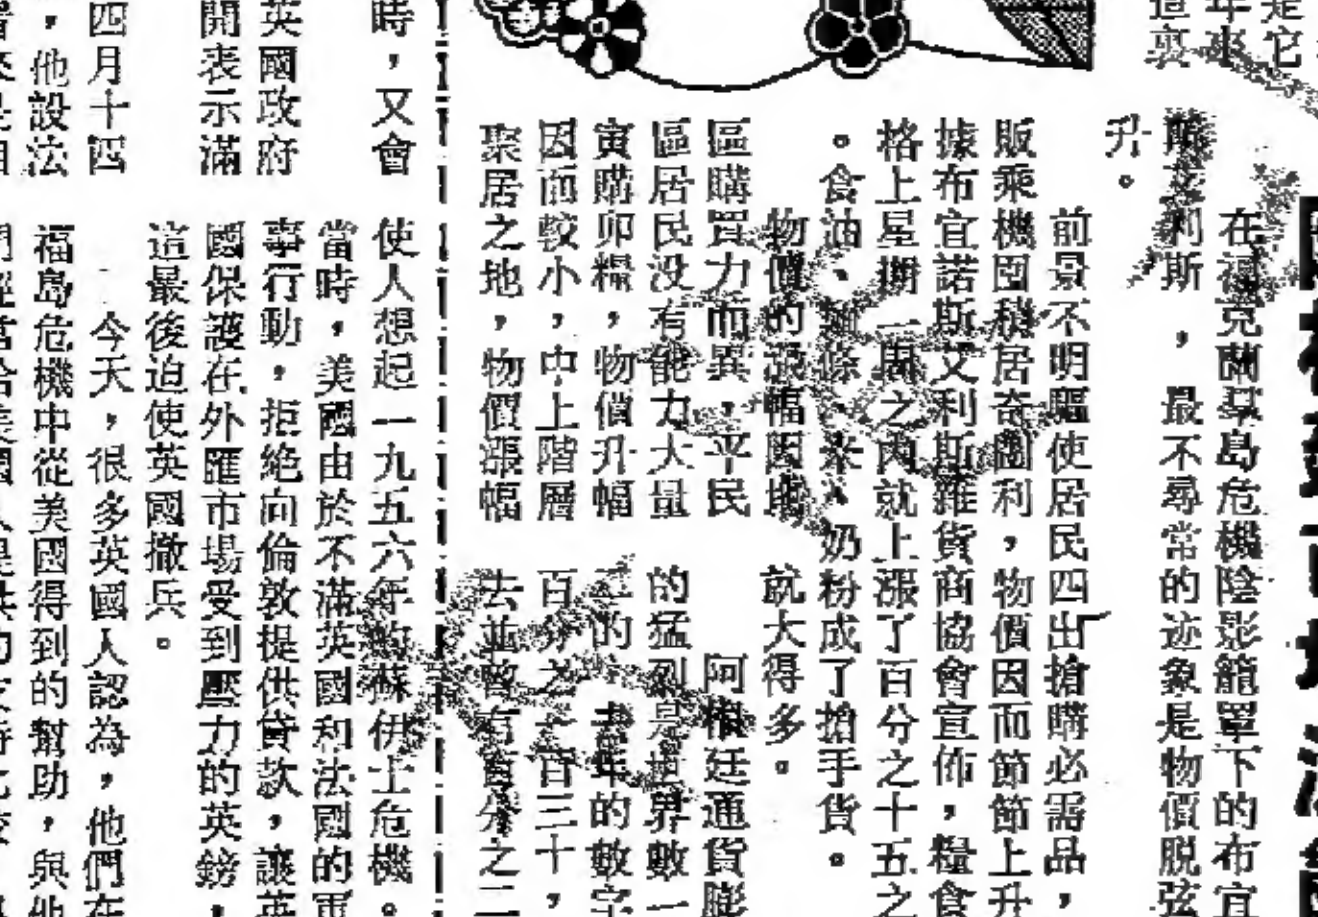 是它
年來
這裏
在福克蘭羣島危機陰影籠罩下的布宜
艾利斯,最不尋常的迹象是物價脱弦
升。
前景不明驅使居民四出搶購必需品,
販乘機囤積居奇圖利,物價因而節節上升
據布宜諾斯艾利斯雜貨商協會宣佈,糧食
格上星期一周之內就上漲了百分之十五之
。食油、條、米、奶粉成了搶手貨。
物價的漲幅因地
區購買力而異,平民
區居民没有能力大量
寅購卯糧,物價升幅
因而較小,中上階層
聚居之地,物價漲幅
就大得多。
阿根廷通貨膨
的猛烈是世界數一
二的。去年的數字
百分之一百三十,
去並曾有百分之二
時,又會
英國政府
開表示滿
四月十四
,他設法
使人想起一九五六年的蘇伊士危機。
當時,美國由於不滿英國和法國的軍
事行動,拒絶向倫敦提供貸款,讓英
國保護在外匯市場受到壓力的英鎊,
這最後迫使英國撤兵。
今天,很多英國人認為,他們在
福島危機中從美國得到的幫助,與他